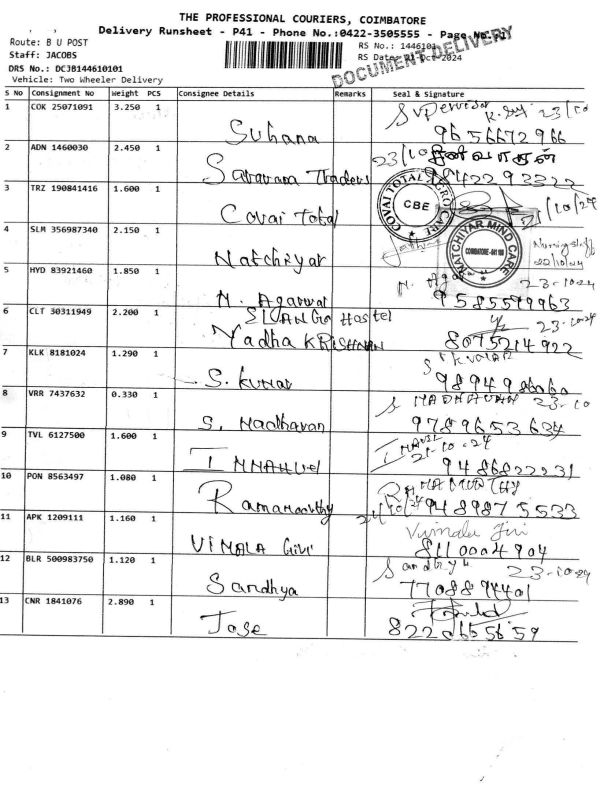 THE PROFESSIONAL COURIERS, COIMBATORE
Delivery Runsheet - P41 - Phone No.:0422-3505555 - Page No.
Route: B U POST
RS No.: 1446101
Staff: JACOBS
RS Date: 21-Oct-2024
DOCUMENT DELIVERY
DRS No.: DCJB144610101
Vehicle: Two Wheeler Delivery
S No Consignment No Weight PCS Consignee Details Remarks Seal & Signature
1 COK 25071091 3.250 1 Supervisor 23/10
Suhana 9656672966
2 ADN 1460030 2.450 1 23/10
Saravana Traders 9842293222
3 TRZ 190841416 1.600 1 COVAI TOTAL CARE CBE
Covai Total 21/10/24
4 SLM 356987340 2.150 1 NATCHIYAR MIND CARE COIMBATORE
Natchiyar
5 HYD 83921460 1.850 1 23-10-24
N. Agarwal 9585579963
6 CLT 30311949 2.200 1 Hostel 23-10-24
Yadha KRISHNAN 8075214922
7 KLK 8181024 1.290 1 S KUMAR
S. kumar
8 VRR 7437632 0.330 1 S MADHAVAN 23-10
S. Madhavan 9789653634
9 TVL 6127500 1.600 1 21-10-24
Immanuel 9486822231
10 PON 8563497 1.080 1 RAMAMURTHY
Ramamoorthy 24/10/24 9489875533
11 APK 1209111 1.160 1 Vimala Giri
VIMALA Giri 8110004904
12 BLR 500983750 1.120 1 Sandhya 23-10-24
Sandhya 7708894401
13 CNR 1841076 2.890 1
Jose 8220665659